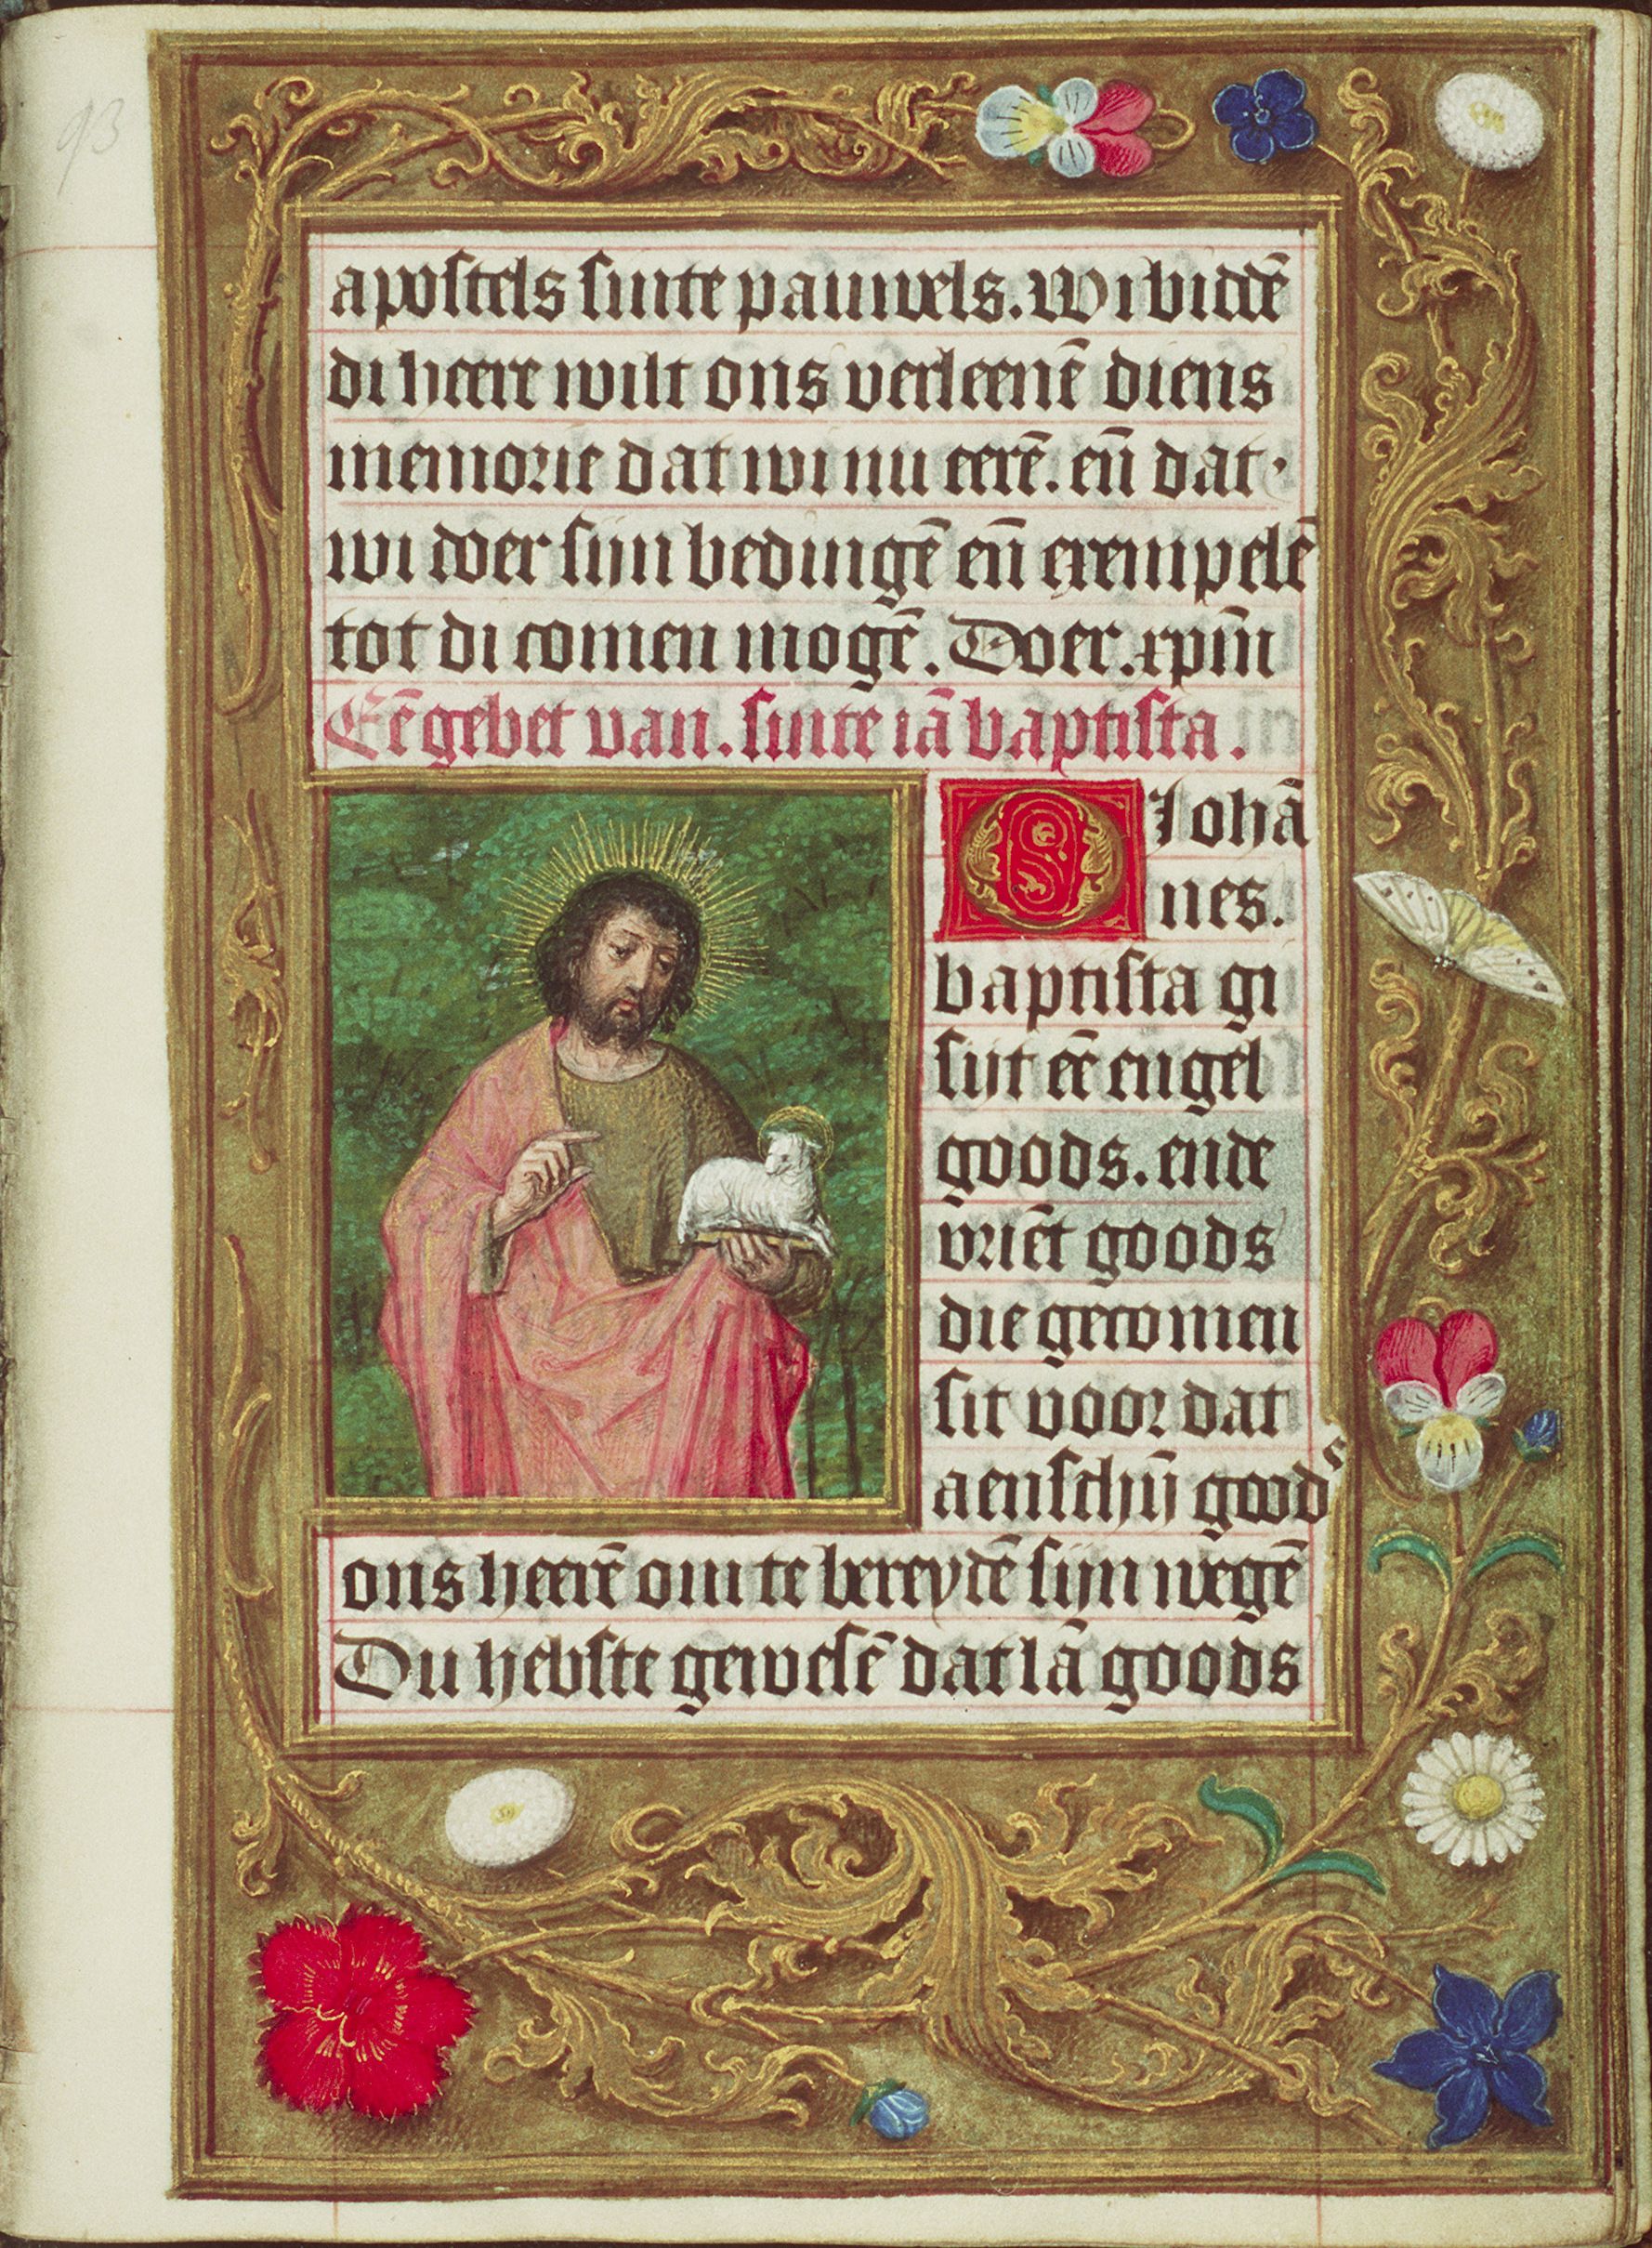 93
apostels sinte pauwels. Wi biddē
di heere wilt ons verleenē diens
memorie dat wi nu eerē. eñ dat·
wi doer sijn bedingē eñ exempelē
tot di comen mogē. Doer. xp̄m
Eē gebet van. sinte iā baptista.
O Iohā
nes.
baptista gi
sijt eē engel
goods. ende
vriēt goods
die gecomen
sit voor dat
aenschijn̄ goods
ons heerē om te bereydē sijn wegē
Du hebste gewesē dat lā goods